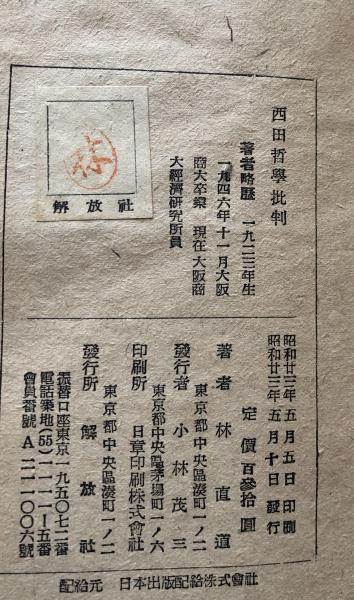 西田哲學批判
著者略歷 一九二三年生
一九四六年十一月大阪
商大卒業 現在大阪商
大經濟硏究所員
解放社
昭和廿三年五月五日印刷
昭和廿三年五月十日發行
定價百參拾圓
著者 林直道
東京都中央區湊町一ノ二
發行者 小林茂三
東京都中央區茅場町一ノ六
印刷所 日章印刷株式會社
東京都中央區湊町一ノ二
發行所 解放社
振替口座東京一九五〇七二番
電話築地(55)一一一一五番
會員番號A二一一〇〇六號
配給元 日本出版配給株式會社